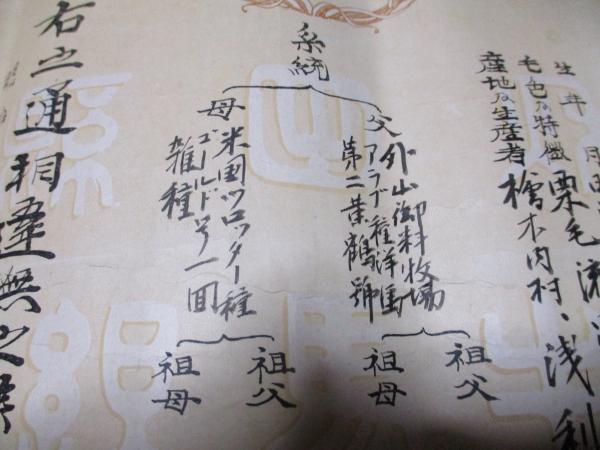 生年月日
毛色及特徴 栗毛 流
産地及生産者 檜木内村、浅利
系統
父 外山御料牧場
アラブ種洋
第二葉鶴號
祖父
祖母
母 米国トロッター種
ゴールド号一回
雑種
祖父
祖母
右之通相違無之